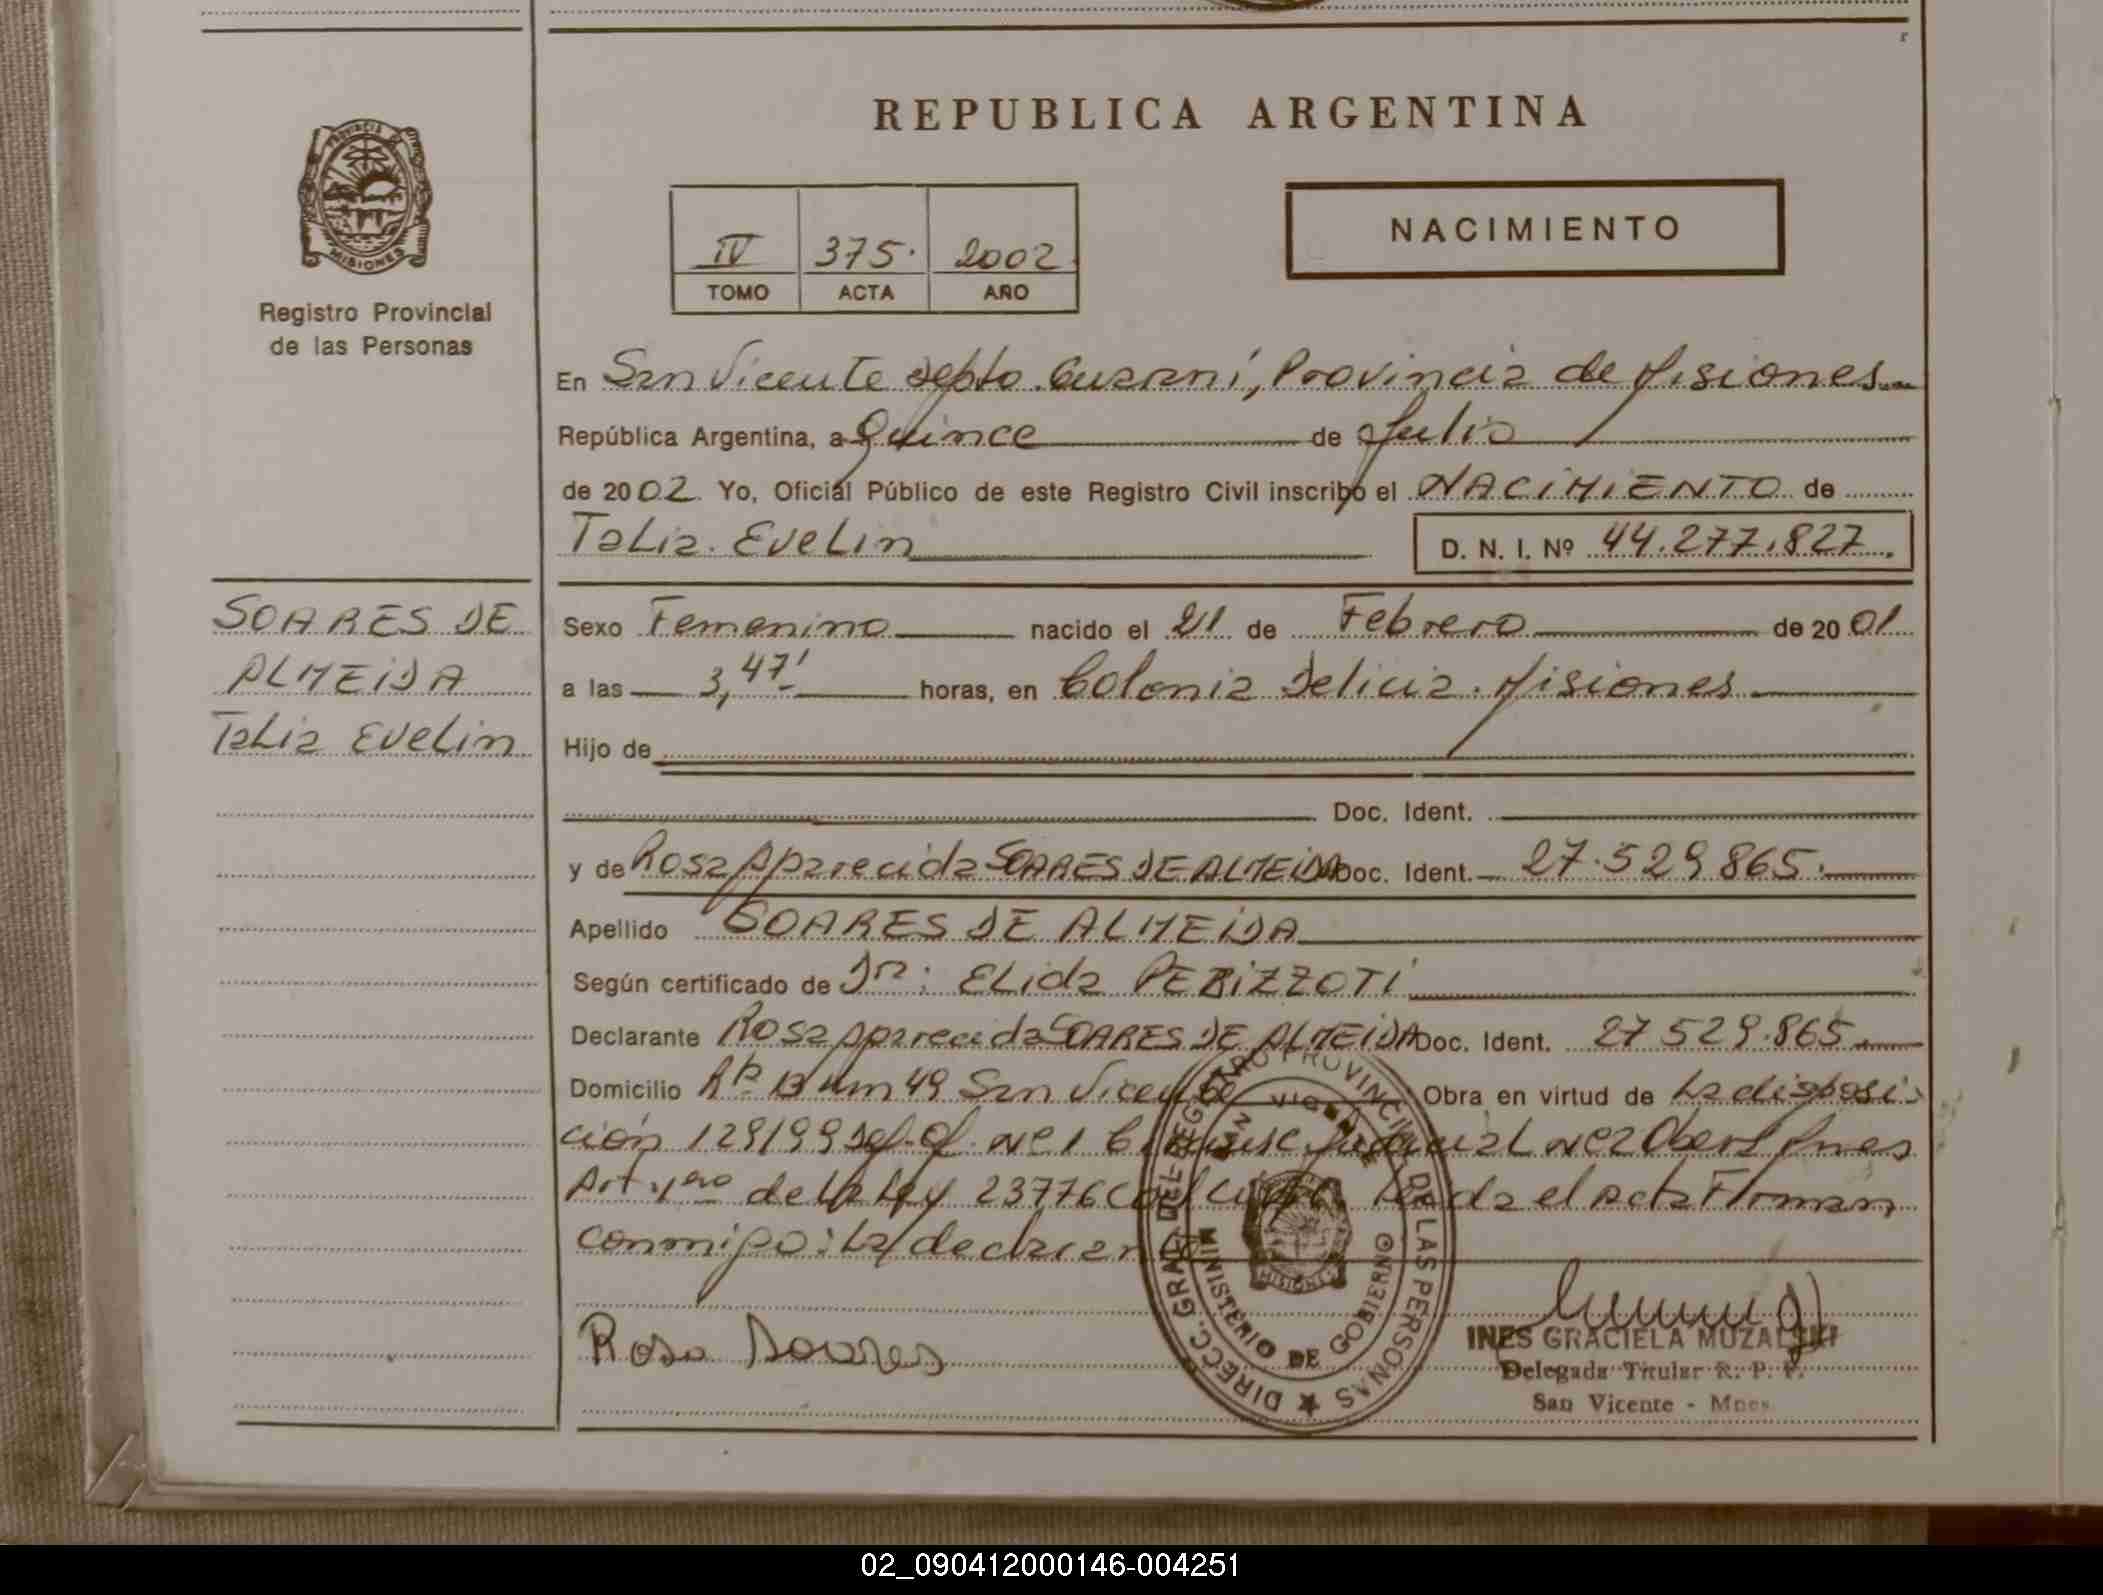 REPUBLICA ARGENTINA
PROVINCIA DE
MISIONES
Registro Provincial
de las Personas
IV 375. 2002
TOMO ACTA AÑO
NACIMIENTO
En San Vicente depto. Guaraní, Provincia de Misiones
República Argentina, a Quince de Julio
de 2002. Yo, Oficial Público de este Registro Civil inscribo el NACIMIENTO de
Talia Evelin D. N. I. Nº 44.277.827.
SOARES DE
ALMEIDA
Talia Evelin
Sexo Femenino nacido el 21 de Febrero de 2001
a las 3,47' horas, en Colonia Delicia. Misiones
Hijo de
Doc. Ident.
y de Rosa Aparecida SOARES DE ALMEIDA Doc. Ident. 27.529.865.
Apellido SOARES DE ALMEIDA
Según certificado de Dra: Elida
Declarante Rosa Aparecida SOARES DE ALMEIDA Doc. Ident. 27 529.865
Domicilio Rta 13 km 49 San Vicente Obra en virtud de la disposi-
ción 129/99 Judicial
Art 1ero de la Ley 23776 Leida el acta Firman
conmigo: la declarante
Rosa Soares
DIRECC. GRAL. DEL REGISTRO PROVINCIAL DE LAS PERSONAS
SAN VICENTE
MINISTERIO DE GOBIERNO
MISIONES
INES GRACIELA MUZALSKI
Delegada Titular R. P. P.
San Vicente - Mnes.
02_090412000146-004251